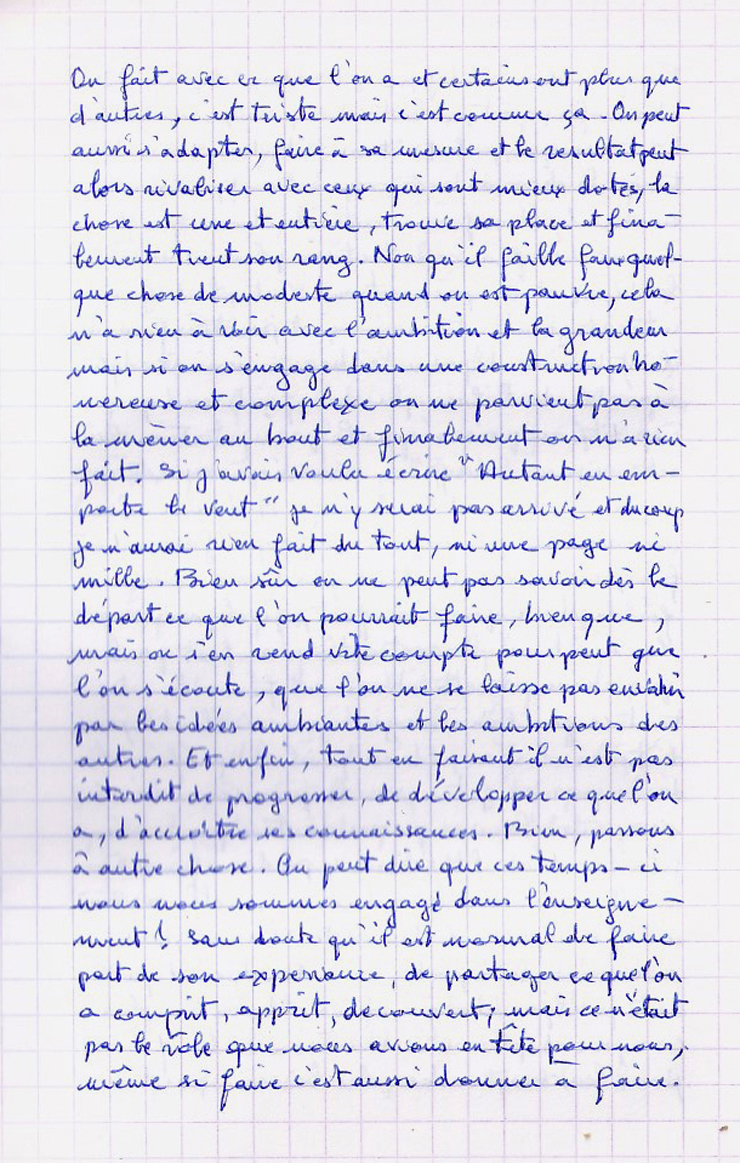 On fait avec ce que l'on a et certains ont plus que
d'autres, c'est triste mais c'est comme ça. On peut
aussi s'adapter, faire à sa mesure et le resultat peut
alors rivaliser avec ceux qui sont mieux dotés, la
chose est une et entière, trouve sa place et fina-
lement tient son rang. Non qu'il faille faire quel-
que chose de modeste quand on est pauvre, cela
n'a rien à voir avec l'ambition et la grandeur
mais si on s'engage dans une construction ho-
nereuse et complexe on ne parvient pas à
la mèner au bout et finalement on n'a rien
fait. Si j'avais voulu écrire "Autant en em-
porte le vent" je n'y serai pas arrivé et du coup
je n'aurai rien fait du tout, ni une page ni
mille. Bien sûr on ne peut pas savoir dès le
départ ce que l'on pourrait faire, bien que,
mais on s'en rend vite compte pour peut que
l'on s'écoute, que l'on ne se laisse pas envahir
par les idées ambiantes et les ambitions des
autres. Et enfin, tout en faisant il n'est pas
interdit de progresser, de développer ce que l'on
a, d'accroitre ses connaissances. Bien, passons
à autre chose. On peut dire que ces temps-ci
nous nous sommes engagé dans l'enseigne-
ment! Sans doute qu'il est normal de faire
part de son experience, de partager ce que l'on
a comprit, apprit, decouvert; mais ce n'était
pas le rôle que nous avions en tête pour nous,
même si faire c'est aussi donner à faire.